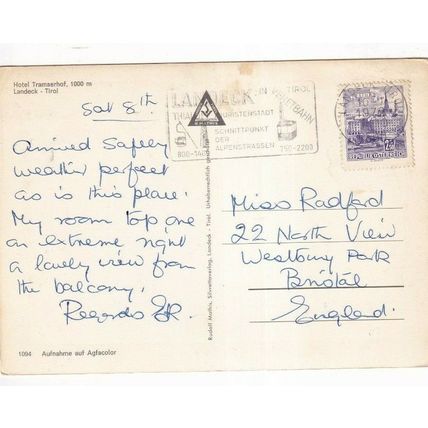 Hotel Tramserhof, 1000 m
Landeck - Tirol
Sat 8th
Arrived Safely
weather perfect
as is this place.
My room top one
on extreme right
a lovely view from
the balcony,
Regards
1094 Aufnahme auf Agfacolor
Rudolf Mathis, Silvrettaverlag, Landeck - Tirol. Urheberrechtlich
LANDECK IN TIROL
TOURISTENSTADT
SCHNITTPUNKT
DER
ALPENSTRASSEN
800-1400
750-2200
REPUBLIK ÖSTERREICH
Miss Radford
22 North View
Westbury Park
Bristol
England.